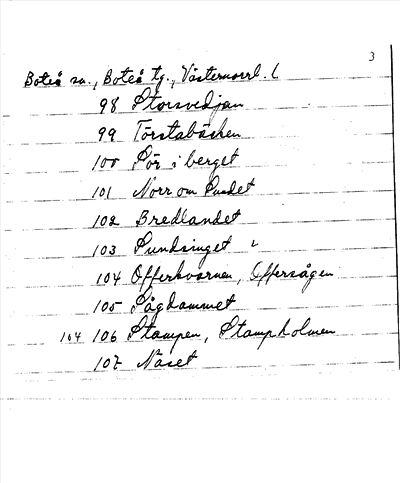 3
Boteå sn., Boteå tg., Västernorrl. l
98 Storsvedjan
99 Törstabäcken
100 Sör i berget
101 Norr om Sundet
102 Bredlandet
103 Sundsinget
104 Offerkvarnen, Offersågen
105 Sågdammet
104 106 Stampen, Stampholmen
107 Näset